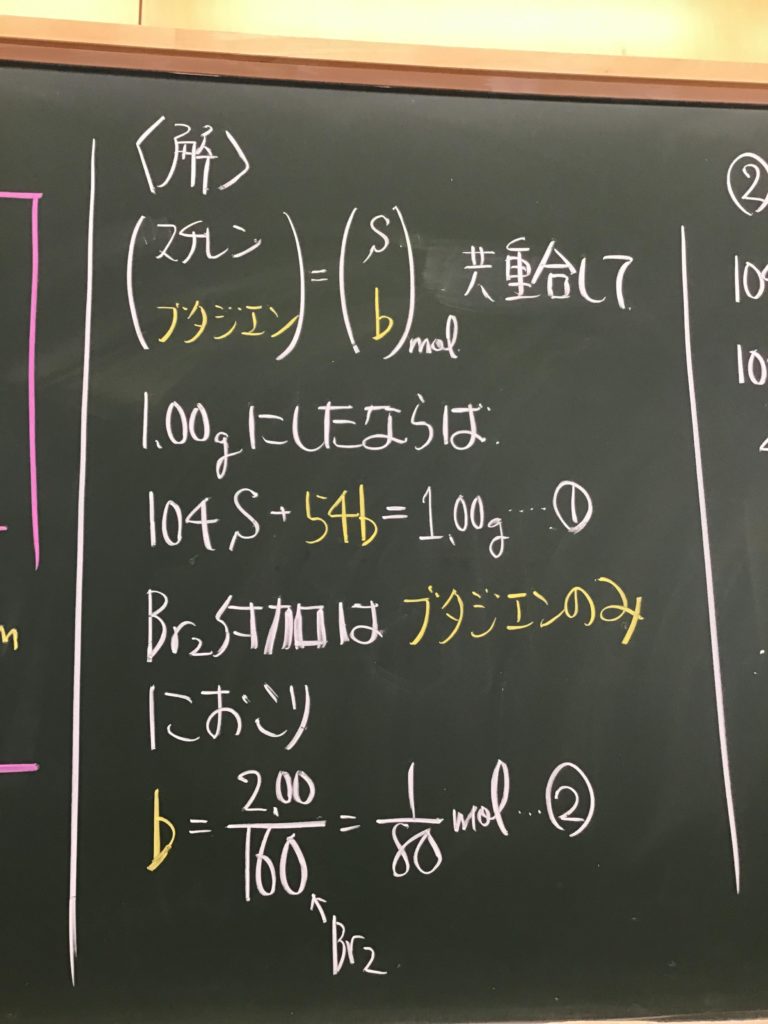 〈解〉
(スチレン ブタジエン) = (S b) mol 共重合して
1.00gにしたならば
104S + 54b = 1.00g … ①
Br₂付加は ブタジエンのみ
におこり
b = 2.00/160 = 1/80 mol … ②
Br₂
②
10